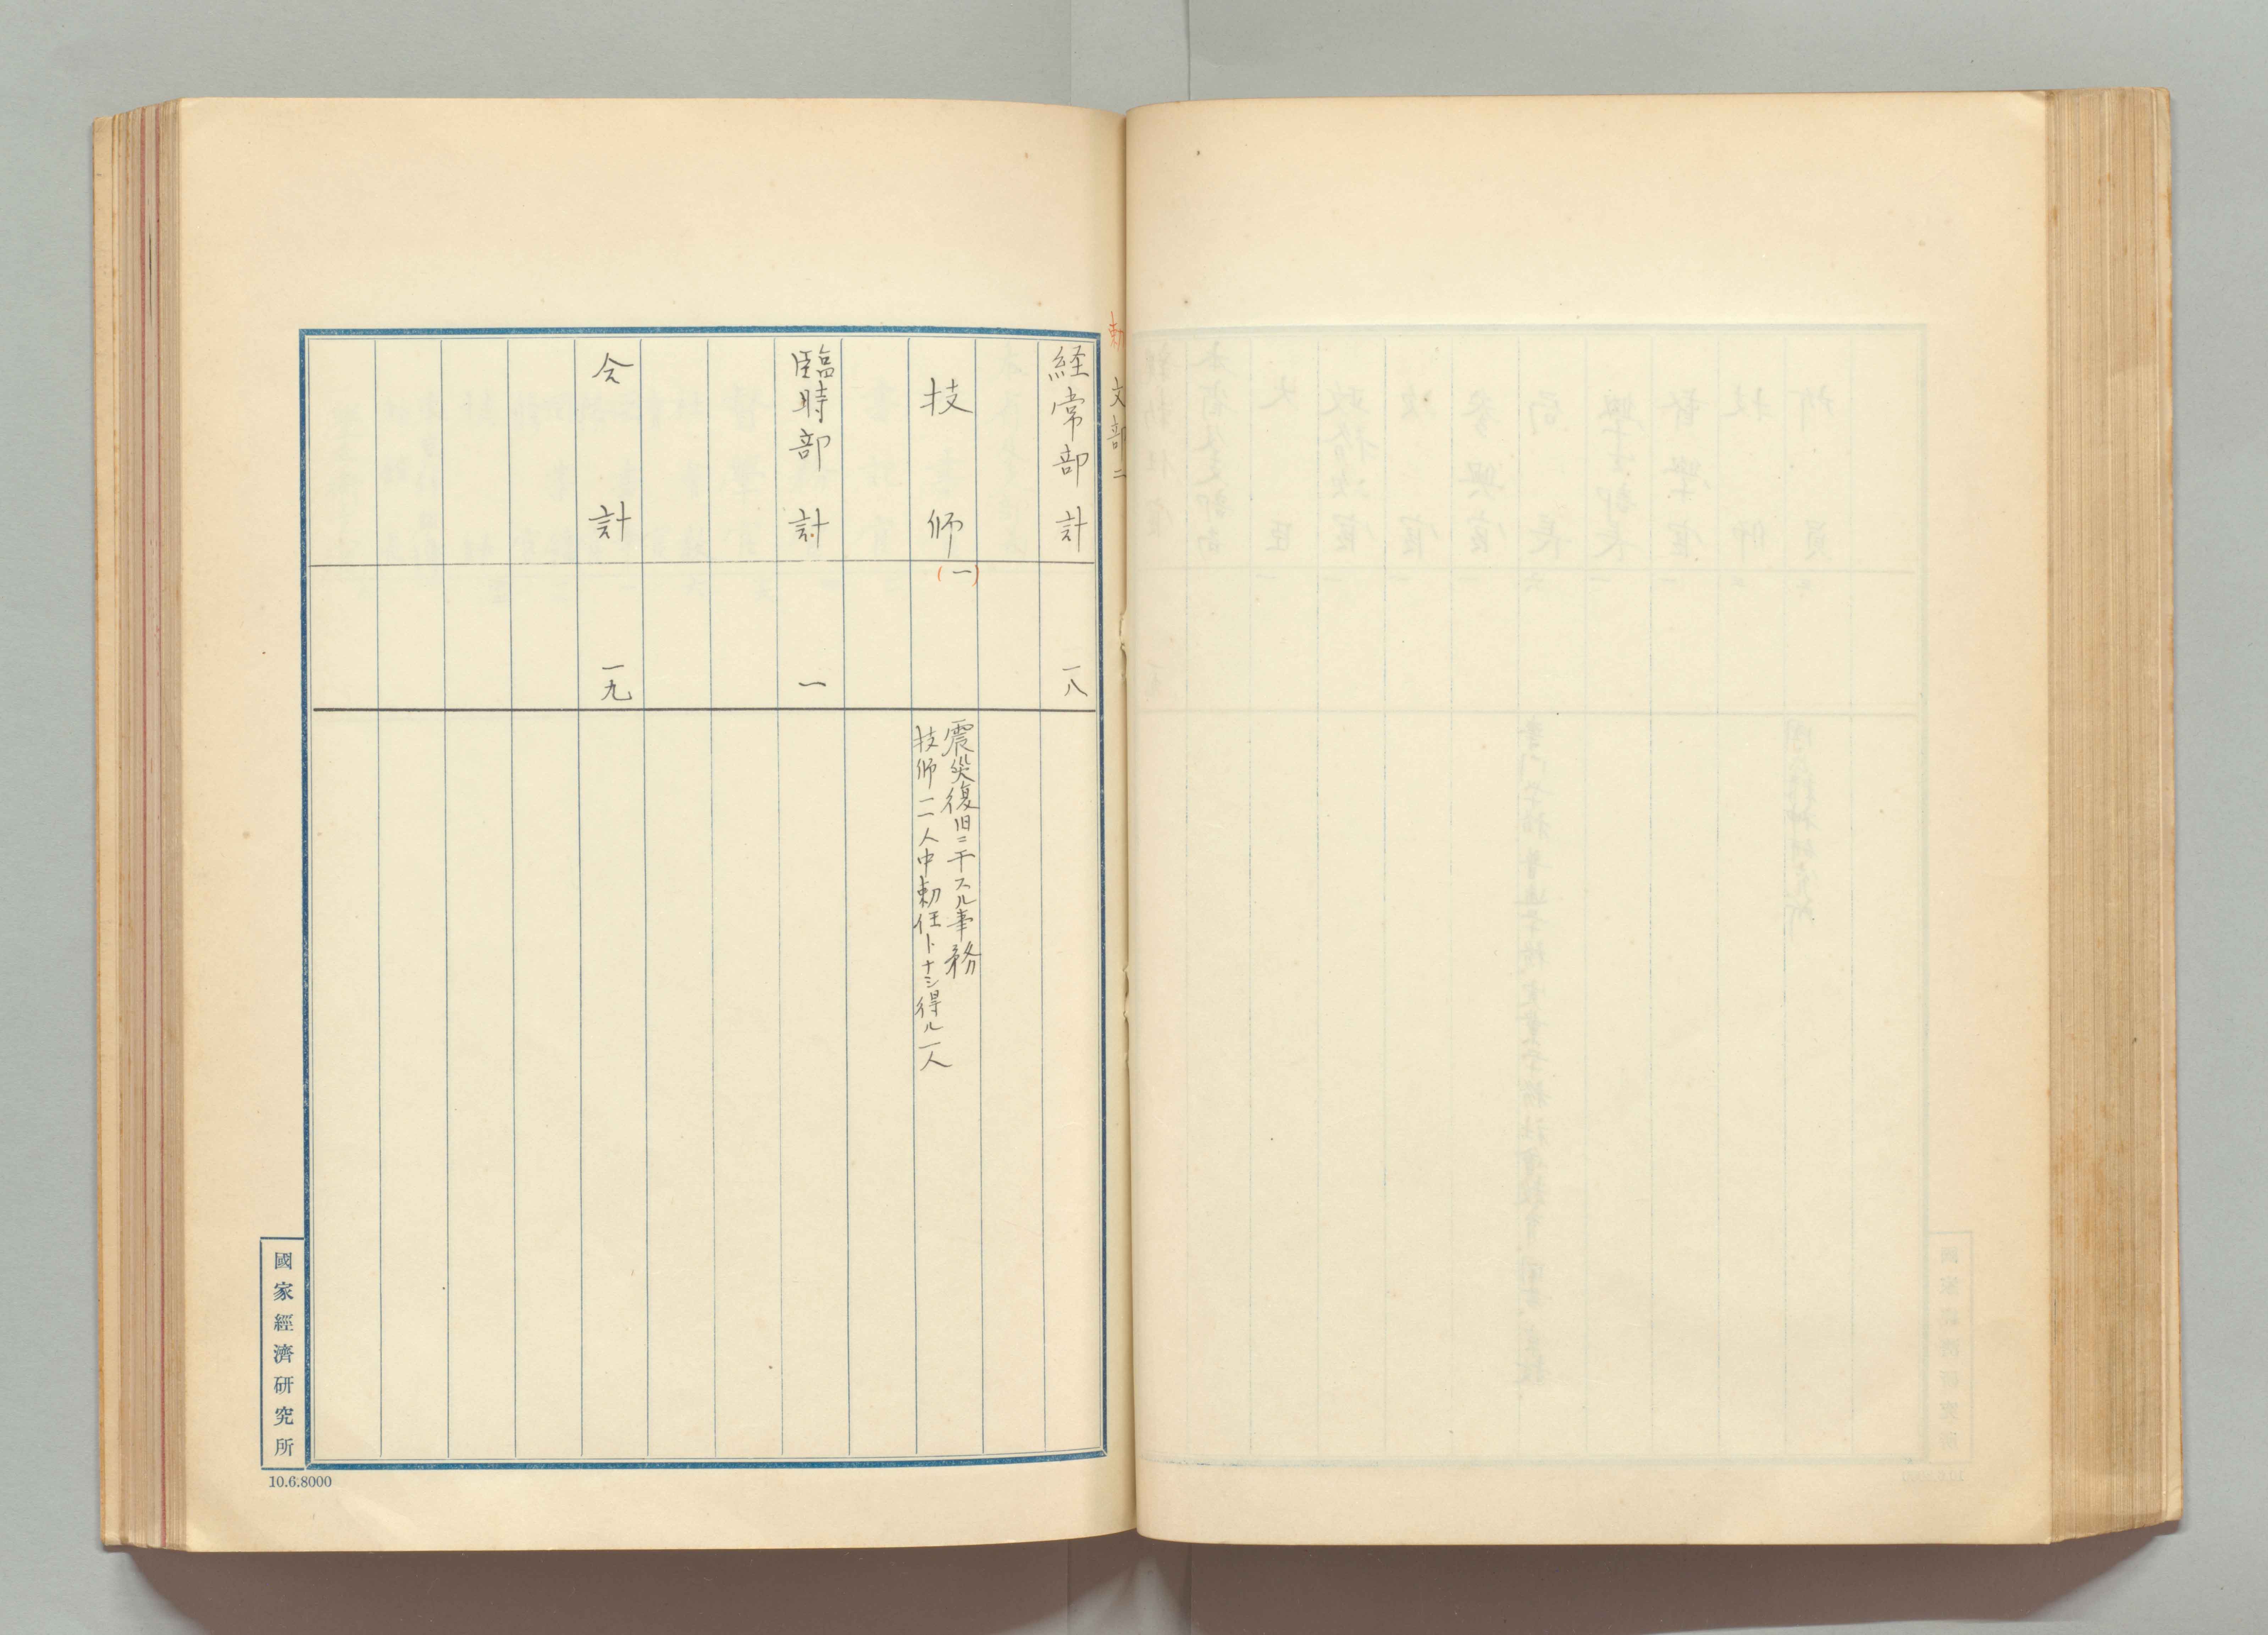 勅 文部二
経常部計 一八
技師 (一) 震災復旧ニ干スル事務
技師二人中勅任トナシ得ル一人
臨時部計 一
合計 一九
國家經濟研究所
10.6.8000